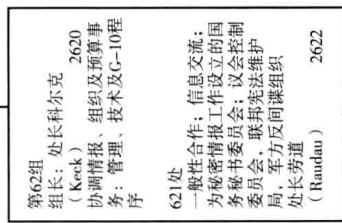 第62组
组长：处长科尔克
（Keck） 2620
协调情报、组织及预算事
务：管理、技术及G-10程
序
621处
一般性合作；信息交流；
为秘密情报工作设立的国
务秘书委员会；议会控制
委员会，联邦宪法维护
局，军方反间谍组织
处长劳道
（Raudau） 2622